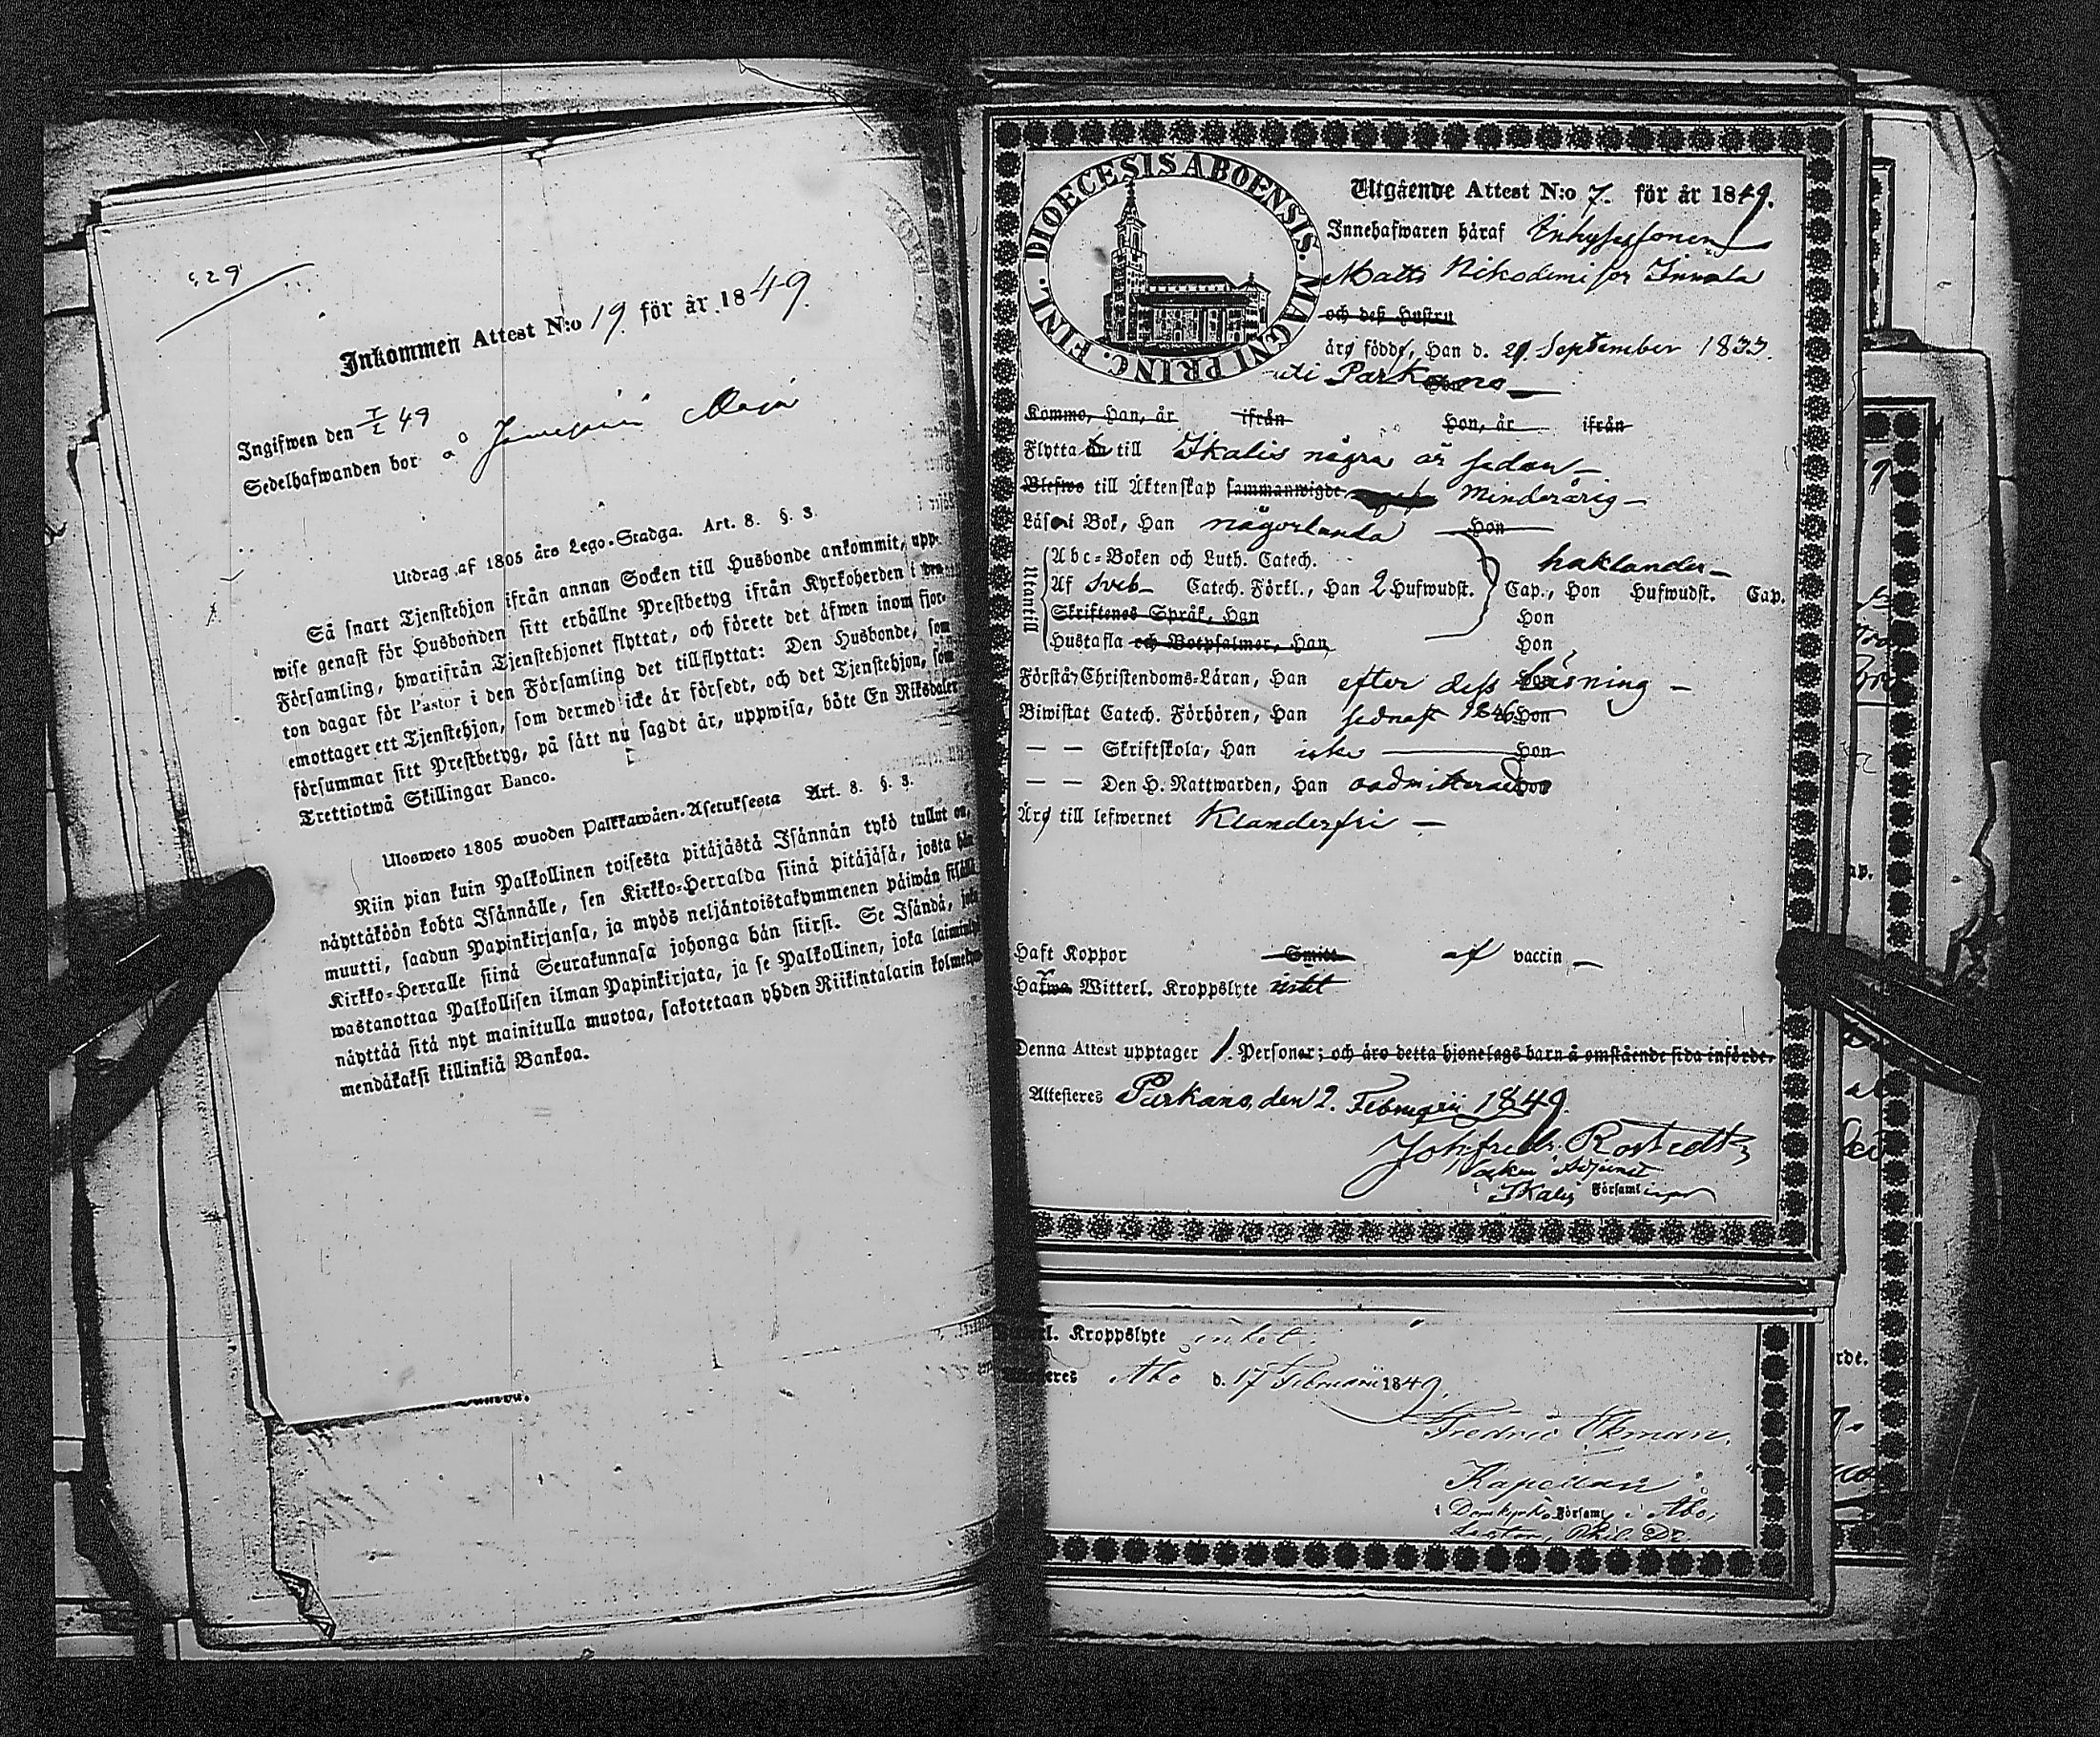 529
Inkommen Attest N:o 19. för år 1849.
Ingifwen den 49
Sedelhafwanden bor å
Utdrag af 1805 års Lego-Stadga. Art. 8. §. 3.
Så snart Tjenstehjon ifrån annan Socken till Husbonde ankommit, upp-
wise genast för Husbonden sitt erhållne Prestbetyg ifrån Kyrkoherden i
Församling, hwarifrån Tjenstehjonet flyttat, och förete det äfwen inom fjor-
ton dagar för Pastor i den Församling det tillflyttat: Den Husbonde, som
emottager ett Tjenstehjon, som dermed icke är försedt, och det Tjenstehjon, som
försummar sitt Prestbetyg, på sätt nu sagdt är, uppwisa, böte En Riksdaler
Trettiotwå Skillingar Banco.
Ulosweto 1805 wuoden Palkkawäen-Asetuksesta Art. 8. §. 3.
Niin pian kuin Palkollinen toisesta pitäjästä Isännän tykö tullut on,
näyttäköön kohta Isännälle, sen Kirkko-Herralda siinä pitäjäsä, josta hän
muutti, saadun Papinkirjansa, ja myös neljäntoistakymmenen päiwän sisällä
Kirkko-Herralle siinä Seurakunnasa johonga hän siirsi. Se Isändä, joka
wastanottaa Palkollisen ilman Papinkirjata, ja se Palkollinen, joka
näyttää sitä nyt mainitulla muotoa, sakotetaan yhden Riikintalarin
mendäkaksi killinkiä Bankoa.
DIOECESIS ABOENSIS. MAGNI PRINC. FINL.
Utgående Attest N:o 7. för år 1849.
Innehafwaren häraf Inhysessonen
Matts Nikodemi son
och dess Hustru
äro födde, Han d. 21 September 1833.
uti Parkano
Komme, Han, år ifrån Hon, år ifrån
Flytta till Ikalis några år sedan
Blefwo till Äktenskap sammanwigde Minderårig
Läser i Bok, Han någorlunda Hon
Utantill
Abc-Boken och Luth. Catech. haklander
Af Sveb Catech. Förkl., Han 2 Hufwudst. Cap., Hon Hufwudst. Cap.
Skriftenes Språk, Han Hon
Hustafla och Botpsalmer, Han Hon
Förstår Christendoms-Läran, Han efter dess läsning
Biwistat Catech. Förhören, Han sednast 1846 Hon
— — Skriftskola, Han icke Hon
— — Den H. Nattwarden, Han oadmitterad Hon
Äro till lefwernet Klanderfri
Haft Koppor Smitt af vaccin
Hafwa Witterl. Kroppslyte intet
Denna Attest upptager 1. Personer; och äro detta hjonelags barn å omstående sida införde.
Attesteres Parkano, den 2. Februarii 1849.
Joh. Fredr. Rostedt
Socken Adjunct
i Ikalis Församling
Kroppslyte intet
Åbo d. 17 Februarii 1849.
Fredric Ekman.
Kapellan
i Domkyrko Församl. i Åbo,
Lector, Phil. Dr.